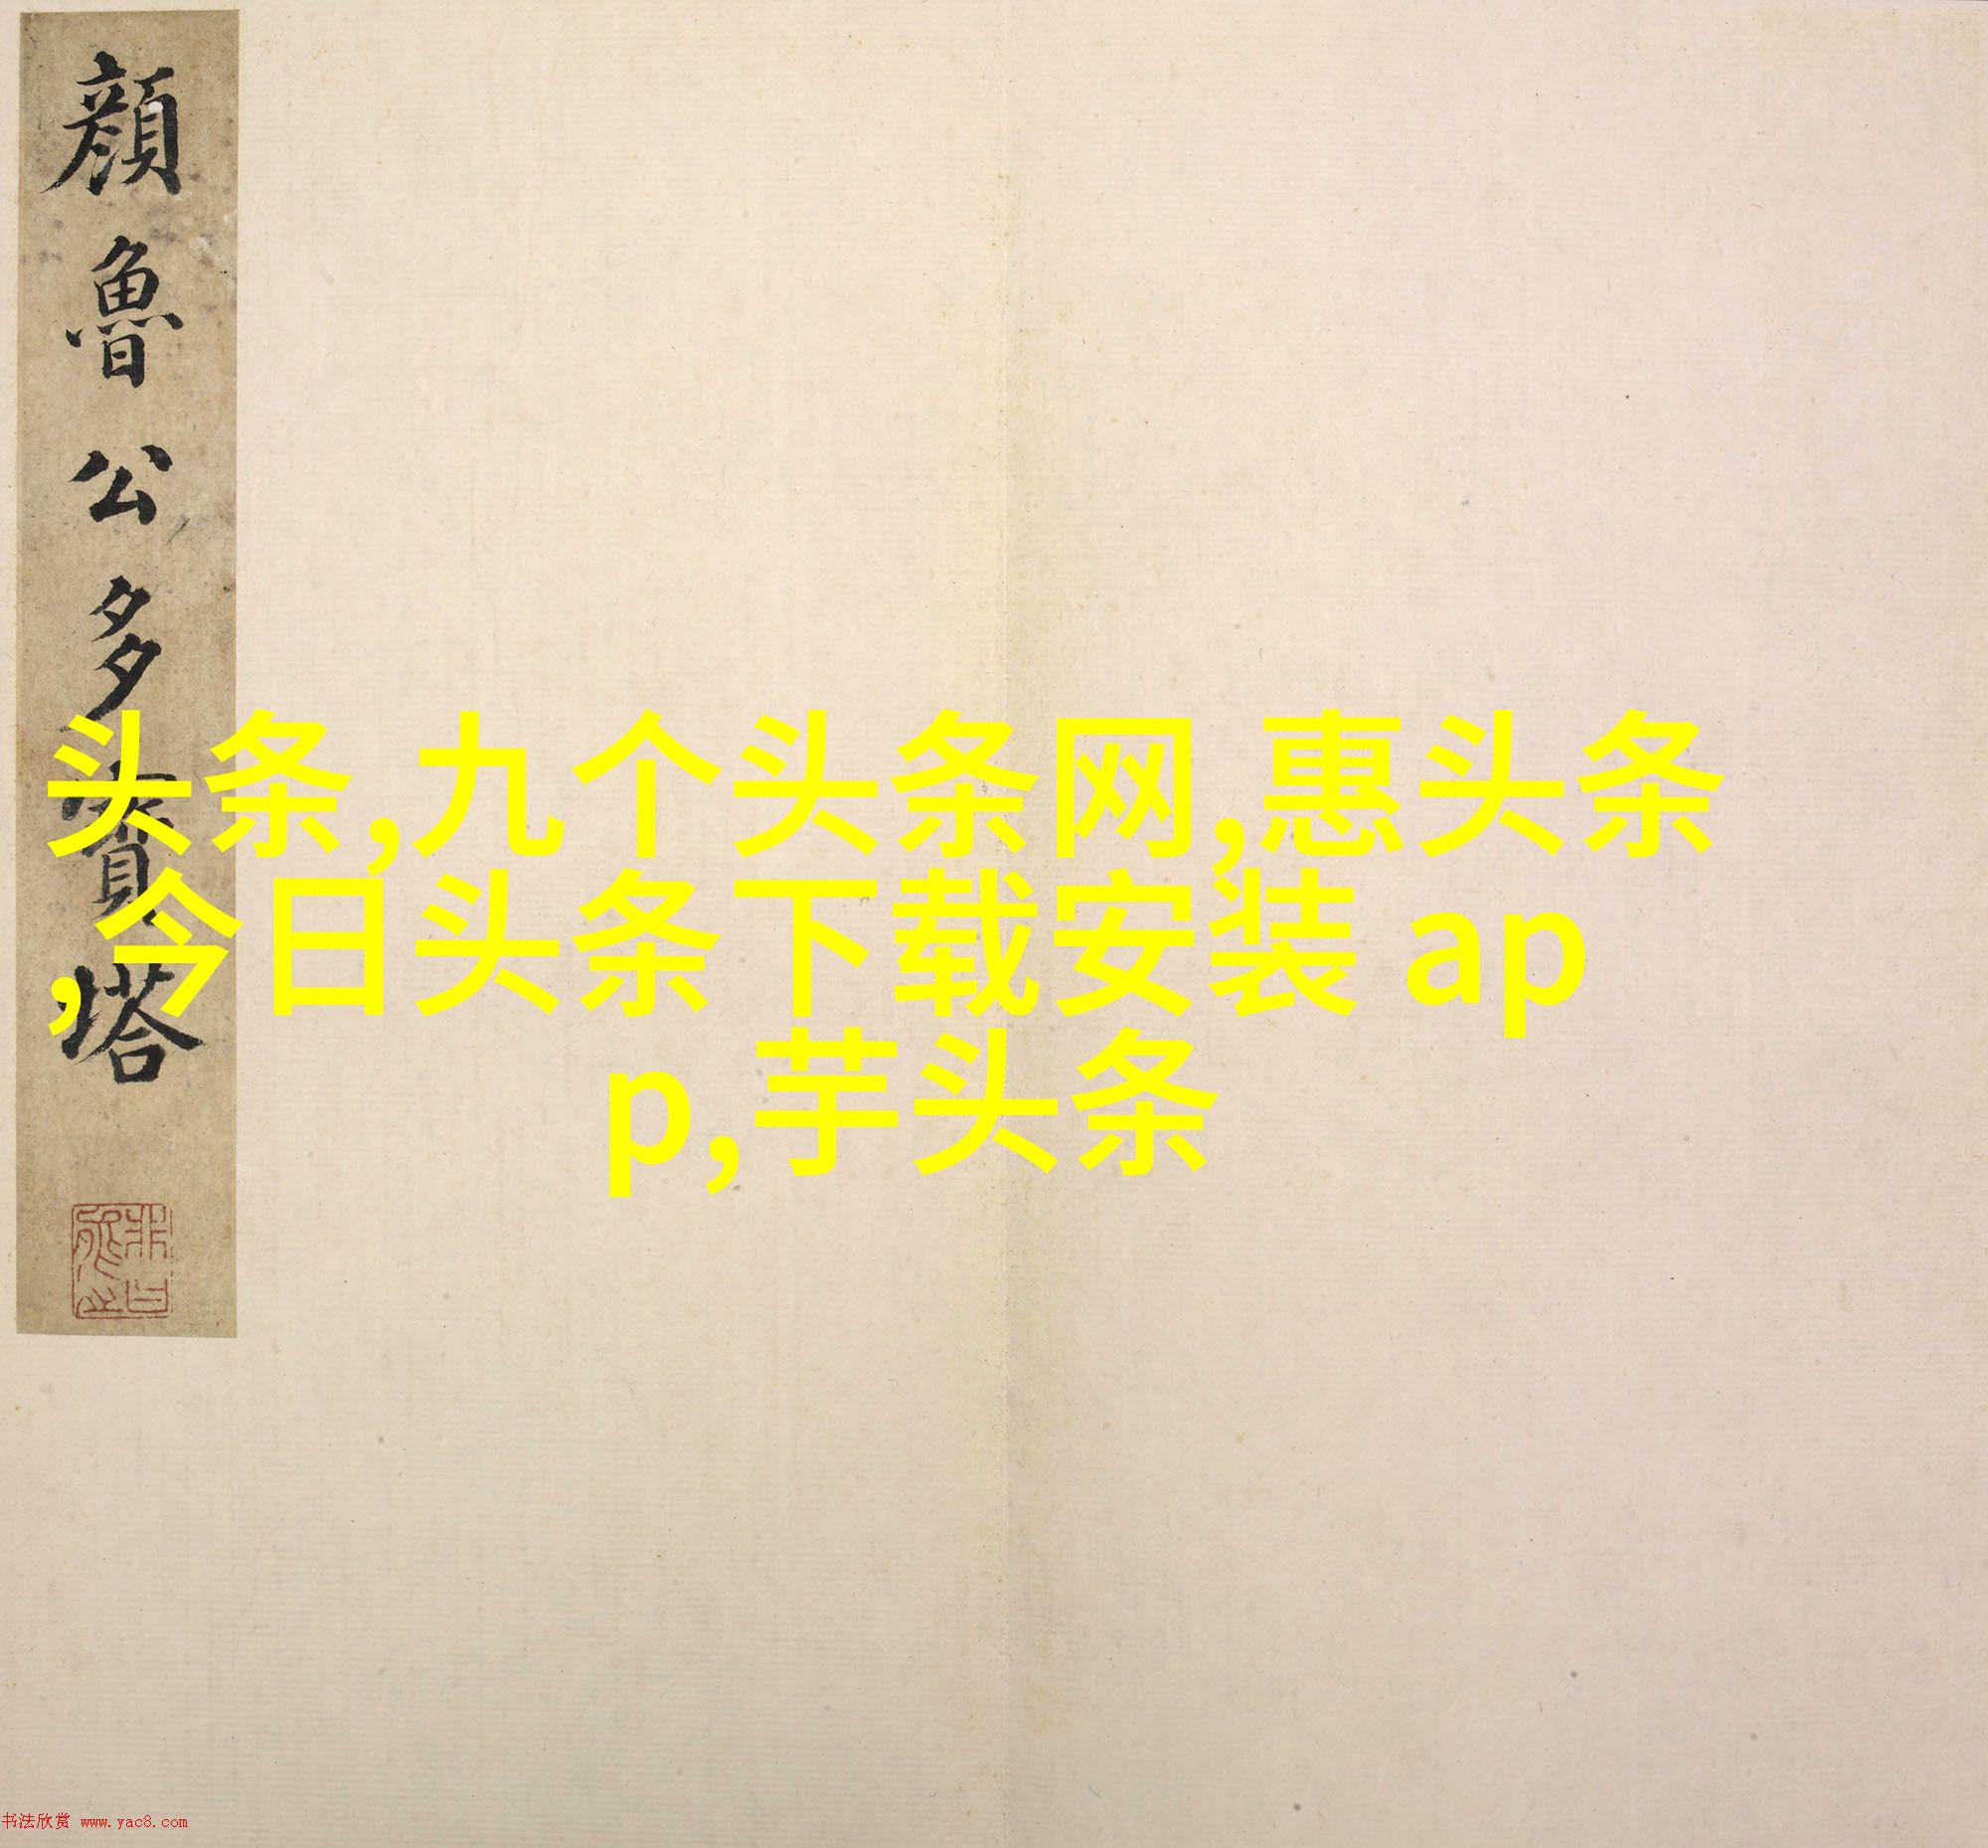 顏魯公多寶塔
头条,九个头条网,惠头条
,今日头条下载安装 ap
p,芋头条
书法欣赏 www.yac8.com